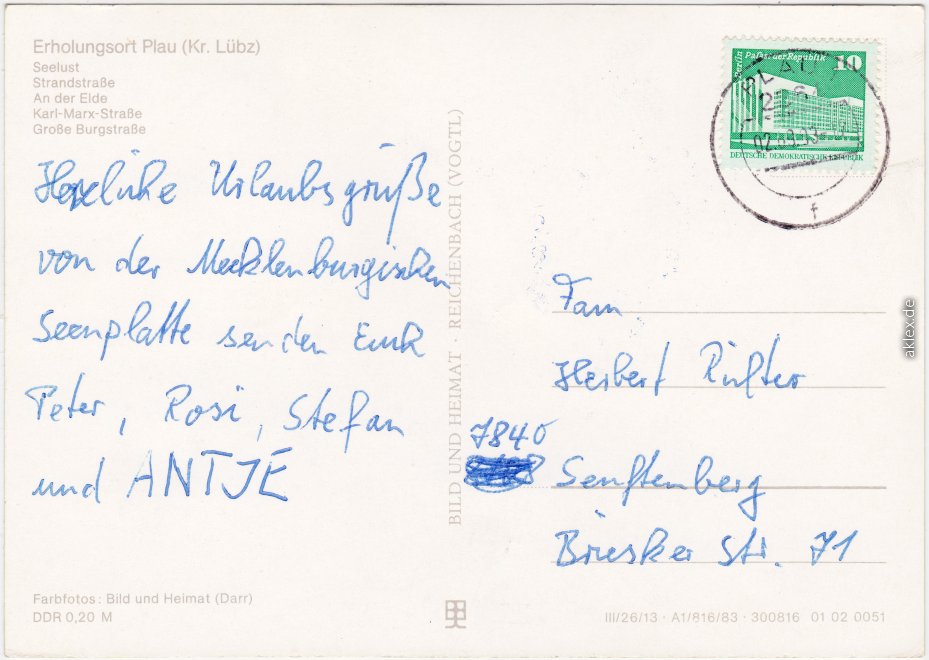 Erholungsort Plau (Kr. Lübz)
Seelust
Strandstraße
An der Elde
Karl-Marx-Straße
Große Burgstraße
Herzliche Urlaubsgrüße
von der Mecklenburgischen
Seenplatte senden Euch
Peter, Rosi, Stefan
und ANTJE
Farbfotos: Bild und Heimat (Darr)
DDR 0,20 M
BILD UND HEIMAT · REICHENBACH (VOGTL)
Berlin Palast der Republik 10
DEUTSCHE DEMOKRATISCHE REPUBLIK
PLAU
f
Fam.
Herbert
7840
Senftenberg
Briesker Str. 71
III/26/13 · A1/816/83 · 300816 01 02 0051
aklex.de